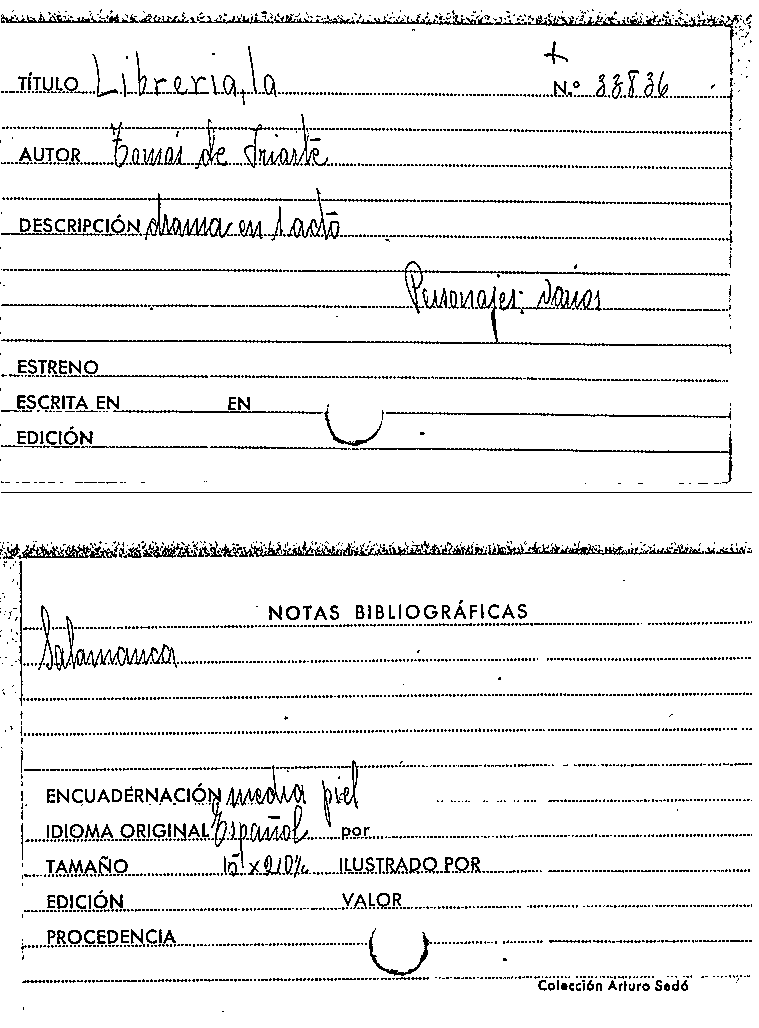 TÍTULO Libreria, la N.º 33836
AUTOR Tomás de Iriarte
DESCRIPCIÓN drama en 1 acto
Personajes: varios
ESTRENO
ESCRITA EN EN
EDICIÓN
NOTAS BIBLIOGRÁFICAS
Salamanca
ENCUADERNACIÓN media piel
IDIOMA ORIGINAL Español por
TAMAÑO ILUSTRADO POR
EDICIÓN VALOR
PROCEDENCIA
Colección Arturo Sedó